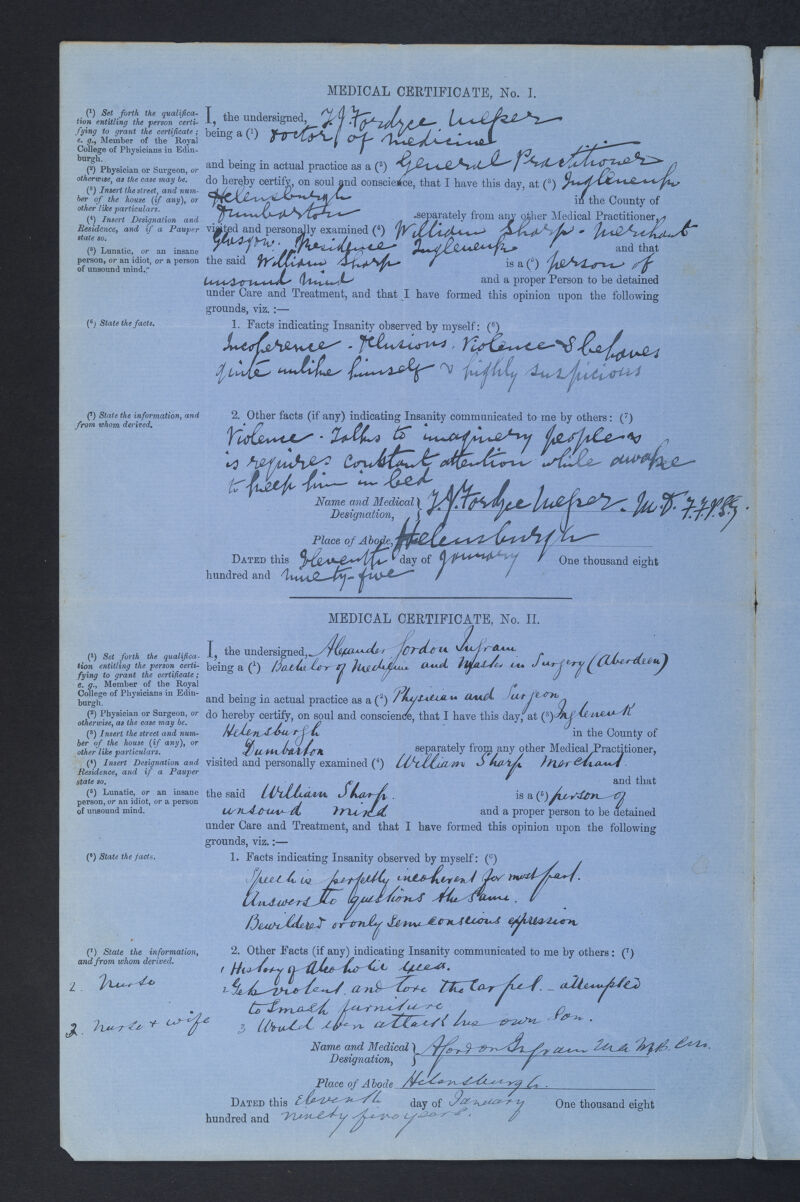 MEDICAL CERTIFICATE, No. I.
(¹) Set forth the qualifica-
tion entitling the person certi-
fying to grant the certificate;
e. g., Member of the Royal
College of Physicians in Edin-
burgh.
(²) Physician or Surgeon, or
otherwise, as the case may be.
(³) Insert the street, and num-
ber of the house (if any), or
other like particulars.
(⁴) Insert Designation and
Residence, and if a Pauper
state so.
(⁵) Lunatic, or an insane
person, or an idiot, or a person
of unsound mind."
I, the undersigned, T. J. Fordyce Messer
being a (¹) Doctor of Medicine
and being in actual practice as a (²) General Practitioner
do hereby certify, on soul and conscience, that I have this day, at (³) Ingleneuk
Helensburgh in the County of
Dumbarton separately from any other Medical Practitioner,
visited and personally examined (⁴) William Sharp - Merchant
Glasgow. Residence Ingleneuk and that
the said William Sharp is a (⁵) person of
unsound mind and a proper Person to be detained
under Care and Treatment, and that I have formed this opinion upon the following
grounds, viz. :—
(⁶) State the facts.
1. Facts indicating Insanity observed by myself: (⁶)
Incoherence - Delusions. Violence & behaves
quite unlike himself & highly suspicious
(⁷) State the information, and
from whom derived.
2. Other facts (if any) indicating Insanity communicated to me by others: (⁷)
Violence - Talks to imaginery people &
is requires constant attention while awake
to keep him in bed
Name and Medical Designation, T. J. Fordyce Messer. M.D. F.F.P.S.G.
Place of Abode, Helensburgh
DATED this Eleventh day of January One thousand eight
hundred and ninety-five
MEDICAL CERTIFICATE, No. II.
(¹) Set forth the qualifica-
tion entitling the person certi-
fying to grant the certificate;
e. g., Member of the Royal
College of Physicians in Edin-
burgh.
(²) Physician or Surgeon, or
otherwise, as the case may be.
(³) Insert the street and num-
ber of the house (if any), or
other like particulars.
(⁴) Insert Designation and
Residence, and if a Pauper
state so.
(⁵) Lunatic, or an insane
person, or an idiot, or a person
of unsound mind.
I, the undersigned, Alexander Gordon Ingram
being a (¹) Bachelor of Medicine and Master in Surgery (Aberdeen)
and being in actual practice as a (²) Physician and Surgeon
do hereby certify, on soul and conscience, that I have this day, at (³) Ingleneuk
Helensburgh in the County of
Dumbarton separately from any other Medical Practitioner,
visited and personally examined (⁴) William Sharp Merchant.
and that
the said William Sharp. is a (⁵) person of
unsound mind and a proper person to be detained
under Care and Treatment, and that I have formed this opinion upon the following
grounds, viz. :—
(⁶) State the facts.
1. Facts indicating Insanity observed by myself: (⁶)
Speech is perfectly incoherent for most part.
Answers to questions the same.
Bewildered or only semi conscious expression
(⁷) State the information,
and from whom derived.
2. Nurse
3. Nurse & wife
2. Other Facts (if any) indicating Insanity communicated to me by others: (⁷)
1 History of Alcoholic excess.
2 Gets violent, and tore the carpet - attempted
to smash furniture
3 Would even attack his own son.
Name and Medical Designation, A Gordon Ingram M.A. M.B. C.M.
Place of Abode Helensburgh.
DATED this eleventh day of January One thousand eight
hundred and ninety five years.